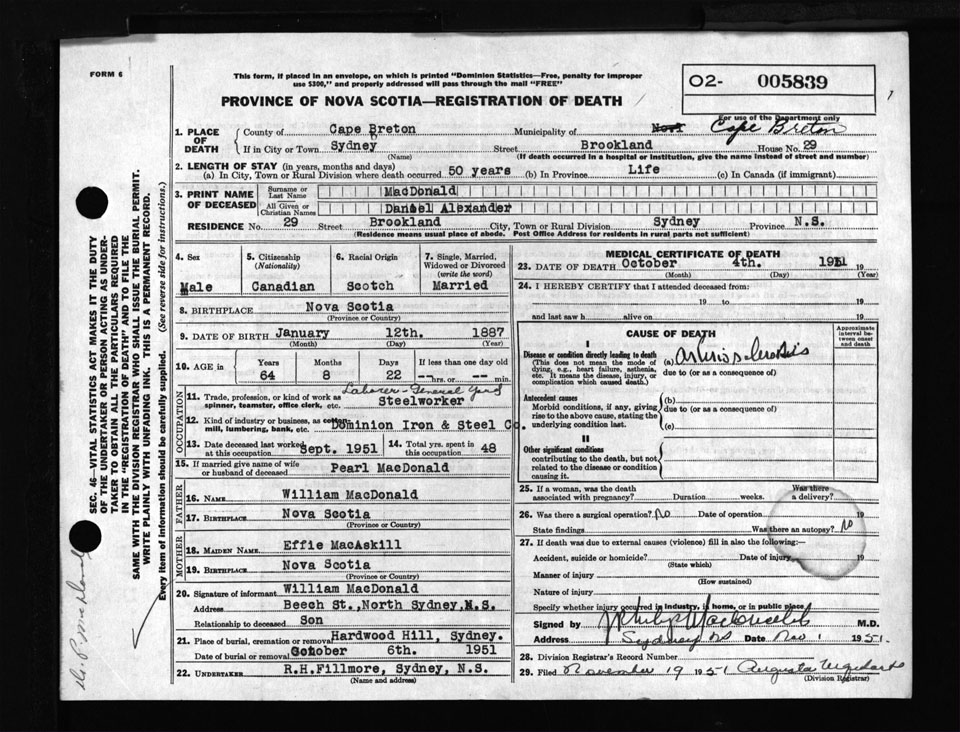 FORM 6
This form, if placed in an envelope, on which is printed "Dominion Statistics—Free, penalty for improper
use $300," and properly addressed will pass through the mail "FREE"
O2- 005839
PROVINCE OF NOVA SCOTIA—REGISTRATION OF DEATH
For use of the Department only
1. PLACE OF DEATH
County of Cape Breton Municipality of Cape Breton
If in City or Town Sydney Street Brookland House No. 29
(Name) (If death occurred in a hospital or institution, give the name instead of street and number)
2. LENGTH OF STAY (in years, months and days)
(a) In City, Town or Rural Division where death occurred 50 years (b) In Province Life (c) In Canada (if immigrant)
3. PRINT NAME OF DECEASED
Surname or Last Name MacDonald
All Given or Christian Names Daniel Alexander
RESIDENCE No. 29 Street Brookland City, Town or Rural Division Sydney Province N.S.
(Residence means usual place of abode. Post Office Address for residents in rural parts not sufficient)
4. Sex
Male
5. Citizenship
(Nationality)
Canadian
6. Racial Origin
Scotch
7. Single, Married,
Widowed or Divorced
(write the word)
Married
8. BIRTHPLACE Nova Scotia
(Province or Country)
9. DATE OF BIRTH January 12th. 1887
(Month) (Day) (Year)
10. AGE in
Years Months Days If less than one day old
64 8 22 -- hrs. or -- min.
OCCUPATION
Laborer - General Yard
11. Trade, profession, or kind of work as
spinner, teamster, office clerk, etc. Steelworker
12. Kind of industry or business, as cotton
mill, lumbering, bank, etc. Dominion Iron & Steel Co.
13. Date deceased last worked
at this occupation Sept. 1951
14. Total yrs. spent in
this occupation 48
15. If married give name of wife
or husband of deceased Pearl MacDonald
FATHER
16. NAME William MacDonald
17. BIRTHPLACE Nova Scotia
(Province or Country)
MOTHER
18. MAIDEN NAME Effie MacAskill
19. BIRTHPLACE Nova Scotia
(Province or Country)
20. Signature of informant William MacDonald
Address Beech St., North Sydney, N.S.
Relationship to deceased Son
21. Place of burial, cremation or removal Hardwood Hill, Sydney.
Date of burial or removal October 6th. 1951
22. UNDERTAKER R.H. Fillmore, Sydney, N.S.
(Name and address)
MEDICAL CERTIFICATE OF DEATH
23. DATE OF DEATH October 4th. 1951 19
(Month) (Day) (Year)
24. I HEREBY CERTIFY that I attended deceased from:
19 to 19
and last saw h alive on 19
CAUSE OF DEATH
Approximate interval between onset and death
I
Disease or condition directly leading to death
(This does not mean the mode of
dying, e.g., heart failure, asthenia,
etc. It means the disease, injury, or
complication which caused death.)
(a) Arteriosclerosis
due to (or as a consequence of)
Antecedent causes
Morbid conditions, if any, giving
rise to the above cause, stating the
underlying condition last.
(b)
due to (or as a consequence of)
(c)
II
Other significant conditions
contributing to the death, but not
related to the disease or condition
causing it.
25. If a woman, was the death
associated with pregnancy? Duration weeks. Was there
a delivery?
26. Was there a surgical operation? No Date of operation 19
State findings Was there an autopsy? No
27. If death was due to external causes (violence) fill in also the following:—
Accident, suicide or homicide? Date of injury 19
(State which)
Manner of injury
(How sustained)
Nature of injury
Specify whether injury occurred in industry, in home, or in public place
Signed by M.D.
Address Sydney NS Date Nov 1 1951.
28. Division Registrar's Record Number
29. Filed November 19 1951 Augusta Urquhart
(Division Registrar)
SEC. 46—VITAL STATISTICS ACT MAKES IT THE DUTY
OF THE UNDERTAKER OR PERSON ACTING AS UNDER-
TAKER TO OBTAIN ALL THE PARTICULARS REQUIRED
IN THE "REGISTRATION OF DEATH" AND TO FILE THE
SAME WITH THE DIVISION REGISTRAR WHO SHALL ISSUE THE BURIAL PERMIT.
WRITE PLAINLY WITH UNFADING INK. THIS IS A PERMANENT RECORD.
Every item of information should be carefully supplied. (See reverse side for instructions.)